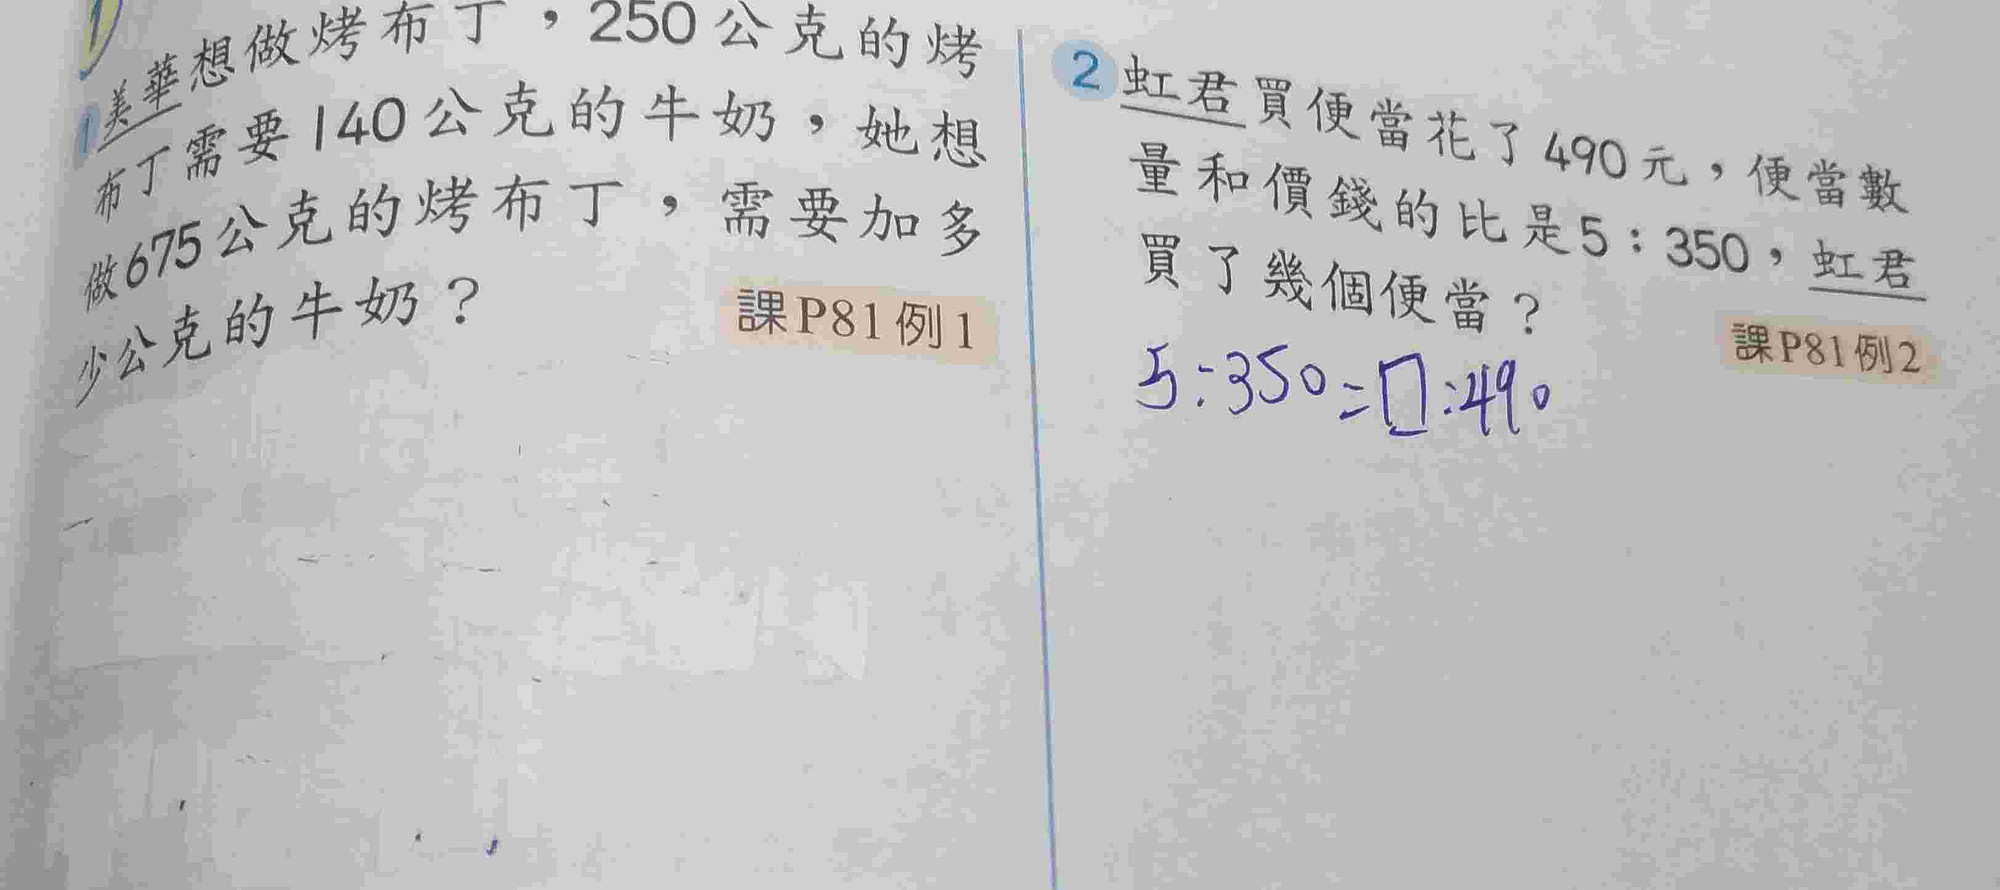 1 美華想做烤布丁，250公克的烤
布丁需要140公克的牛奶，她想
做675公克的烤布丁，需要加多
少公克的牛奶？
課P81例1
2 虹君買便當花了490元，便當數
量和價錢的比是5：350，虹君
買了幾個便當？
課P81例2
5:350=□:490